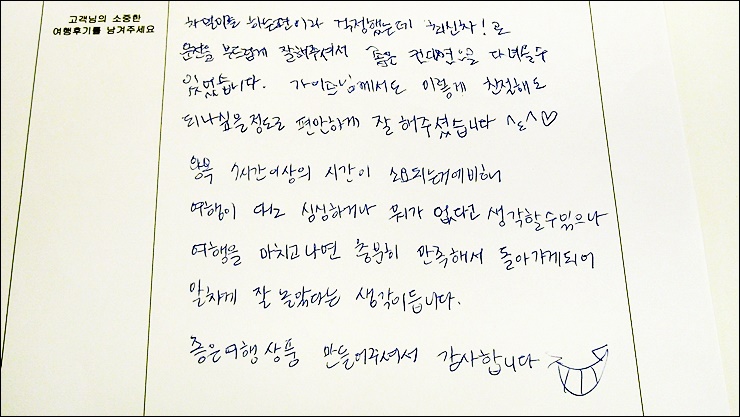 고객님의 소중한
여행후기를 남겨주세요
걱정했는데 최신차! 로
운전을 부드럽게 잘해주셔서 좋은 컨디션으로 다녀올수
있었습니다. 가이드님께서도 이렇게 친절해도
되나싶을정도로 편안하게 잘 해주셨습니다 ^ε^♡
왕복 7시간이상의 시간이 소요되는거에비해
여행이 심심하거나 뭐가 없다고 생각할수있으나
여행을 마치고나면 충분히 만족해서 돌아가게되어
알차게 잘 놀았다는 생각이듭니다.
좋은여행상품 만들어주셔서 감사합니다